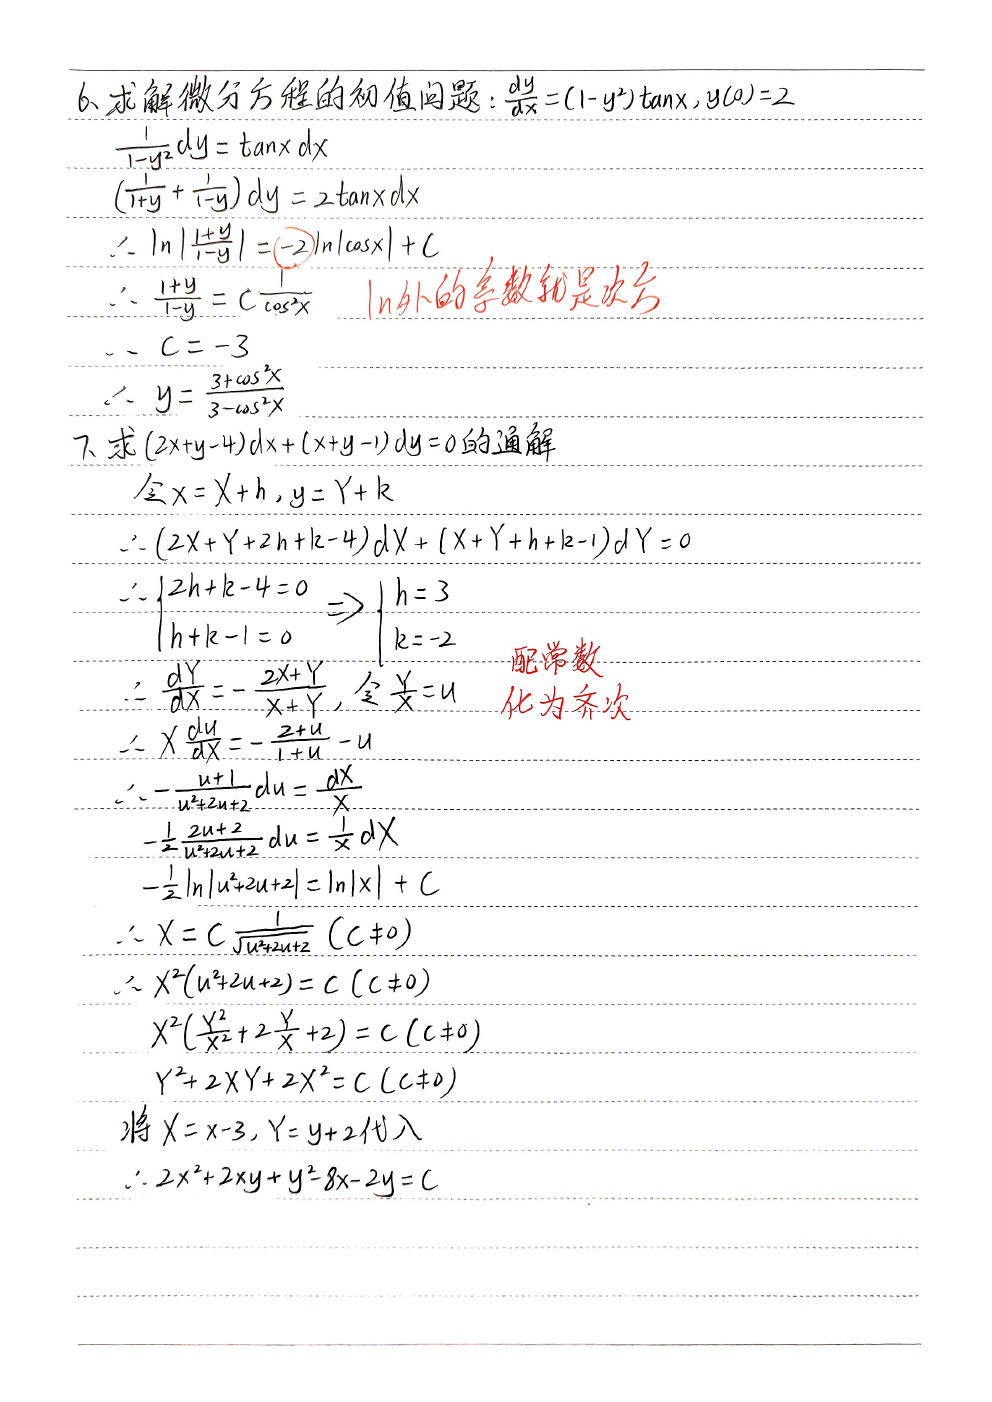 6、求解微分方程的初值问题: dy/dx = (1-y²)tanx, y(0)=2
1/(1-y²) dy = tanx dx
(1/(1+y) + 1/(1-y)) dy = 2tanx dx
∴ ln|(1+y)/(1-y)| = -2ln|cosx| + C
∴ (1+y)/(1-y) = C 1/cos²x
ln外的系数就是次方
∴ C = -3
∴ y = (3+cos²x)/(3-cos²x)
7、求(2x+y-4)dx+(x+y-1)dy=0的通解
令x=X+h, y=Y+k
∴ (2X+Y+2h+k-4)dX+(X+Y+h+k-1)dY=0
∴ {2h+k-4=0 ⇒ {h=3
h+k-1=0 k=-2
配常数
化为齐次
∴ dY/dX = -(2X+Y)/(X+Y), 令 Y/X = u
∴ X du/dX = -(2+u)/(1+u) - u
∴ -(u+1)/(u²+2u+2) du = dX/X
-1/2 (2u+2)/(u²+2u+2) du = 1/X dX
-1/2 ln|u²+2u+2| = ln|X| + C
∴ X = C 1/√(u²+2u+2) (C≠0)
∴ X²(u²+2u+2) = C (C≠0)
X²(Y²/X²+2Y/X+2) = C (C≠0)
Y²+2XY+2X² = C (C≠0)
将X=x-3, Y=y+2代入
∴ 2x²+2xy+y²-8x-2y=C